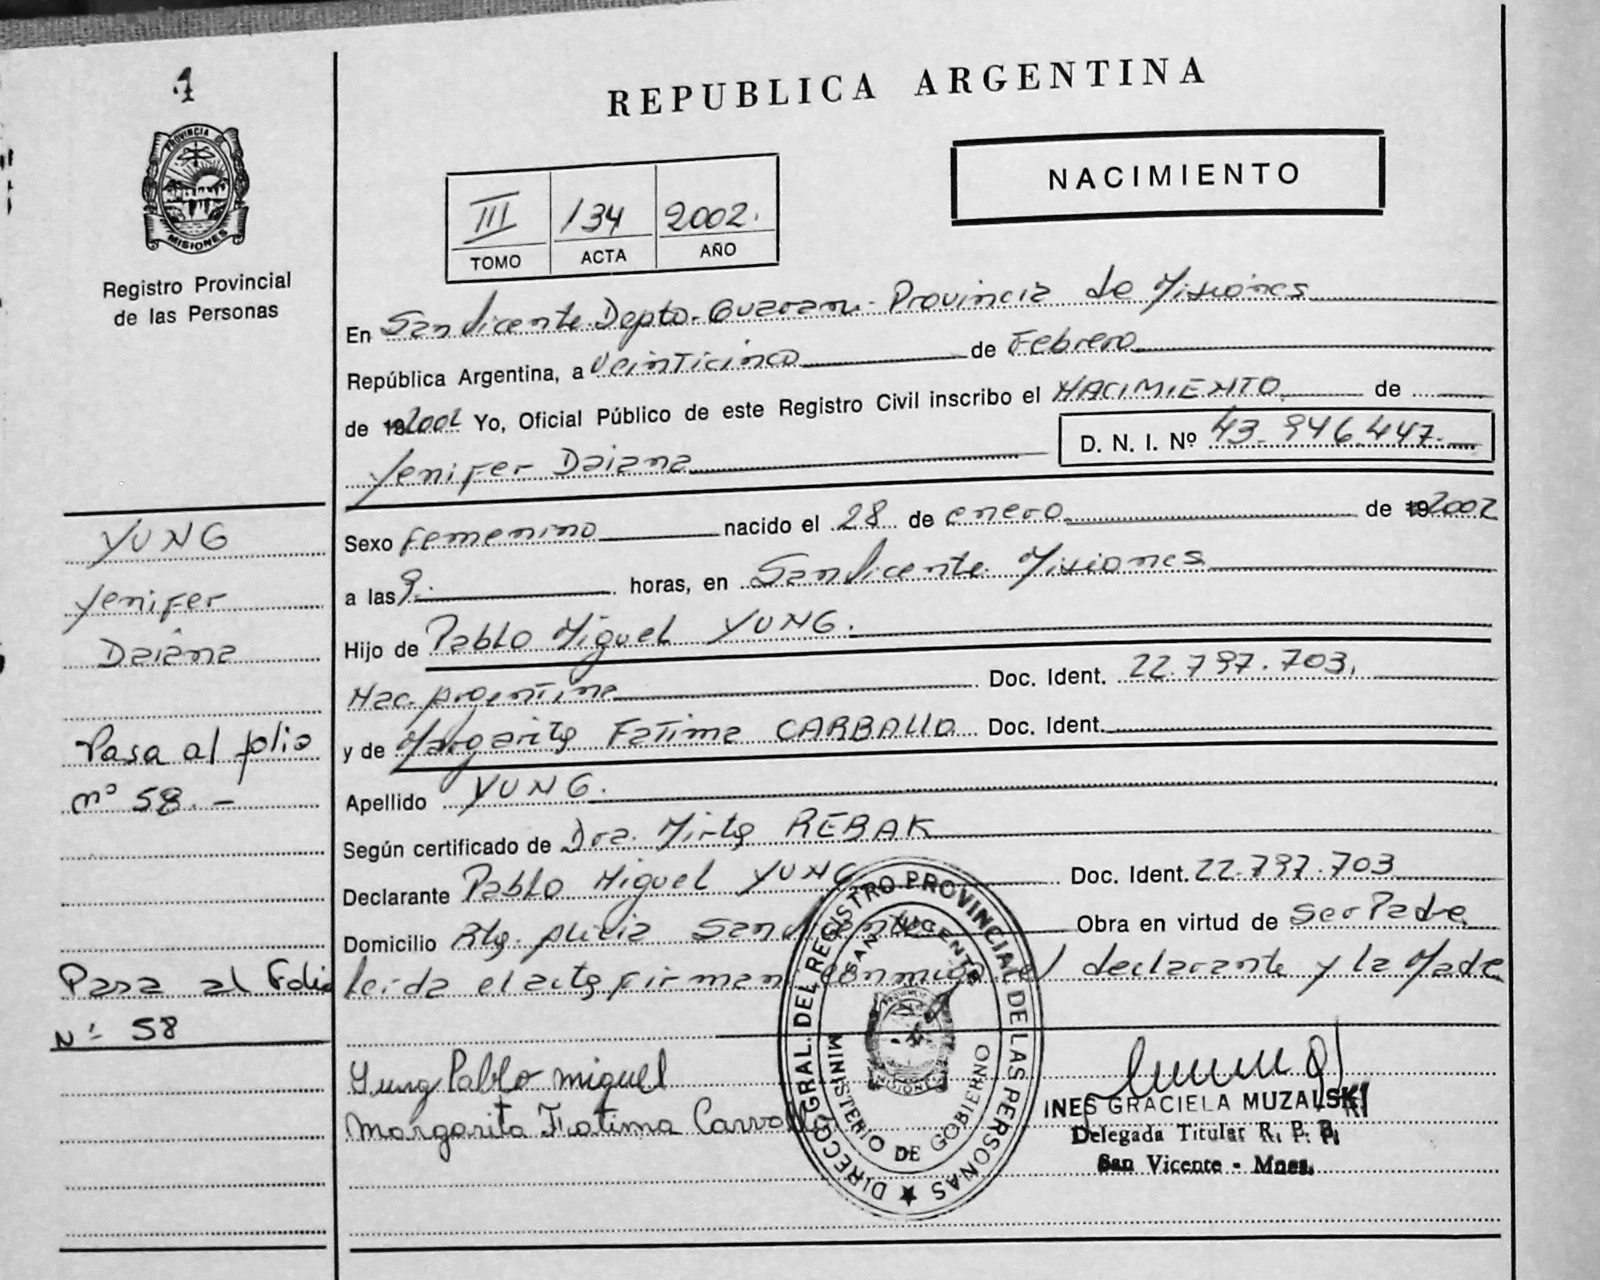 1
PROVINCIA DE
MISIONES
Registro Provincial
de las Personas
REPUBLICA ARGENTINA
NACIMIENTO
III 134 2002.
TOMO ACTA AÑO
En San Vicente. Depto. Guarani. Provincia de Misiones
República Argentina, a veinticinco de Febrero
de 19 2002 Yo, Oficial Público de este Registro Civil inscribo el NACIMIENTO de
Yenifer Daiana D. N. I. Nº 43.946.447.
Sexo femenino nacido el 28 de enero de 19 2002
a las 9. horas, en San Vicente. Misiones
Hijo de Pablo Miguel YUNG.
Nac. Argentina Doc. Ident. 22.797.703.
y de Margarita Fatima CARBALLO Doc. Ident.
Apellido YUNG.
Según certificado de Dra. Mirta REBAK
Declarante Pablo Miguel YUNG Doc. Ident. 22.797.703
Domicilio San Vicente Obra en virtud de ser Padre
leida el acta firman conmigo el declarante y la Madre
YUNG
Yenifer
Daiana
Pasa al folio
nº 58.-
Pasa al Folio
Nº 58
Yung Pablo miguel
Margarita Fatima Carvallo
DIRECC. GRAL. DEL REGISTRO PROVINCIAL DE LAS PERSONAS
SAN VICENTE
MINISTERIO DE GOBIERNO
MISIONES
INES GRACIELA MUZALSKI
Delegada Titular R. P. P.
San Vicente - Mnes.